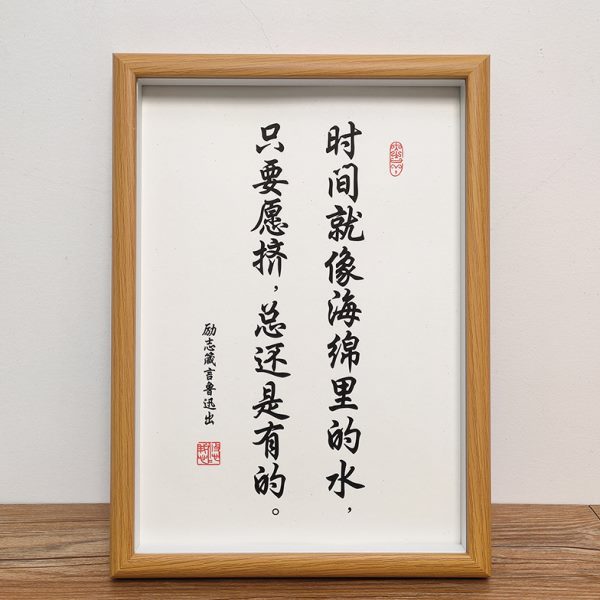 时间就像海绵里的水，
只要愿挤，总还是有的。
励志箴言鲁迅出